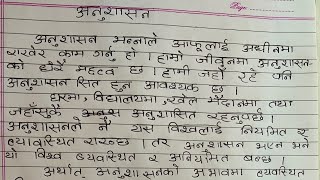 अनुशासन
अनुशासन भन्नाले आफूलाई अधीनमा
राखेर काम गर्नु हो। हाम्रो जीवनमा अनुशासन-
को धेरै महत्व छ। हामी जहाँ रहे पनि
अनुशासन सित हुन आवश्यक छ।
घरमा, विद्यालयमा, खेल मैदानमा तथा
जहाँसुकै अनुशासित रहनुपर्छ।
अनुशासनले नै यस विश्वलाई नियमित र
व्यवस्थित राख्छ। तर अनुशासन भएन भने
यो विश्व र अनियमित बन्छ।
अर्थात्, अनुशासनको अभावमा